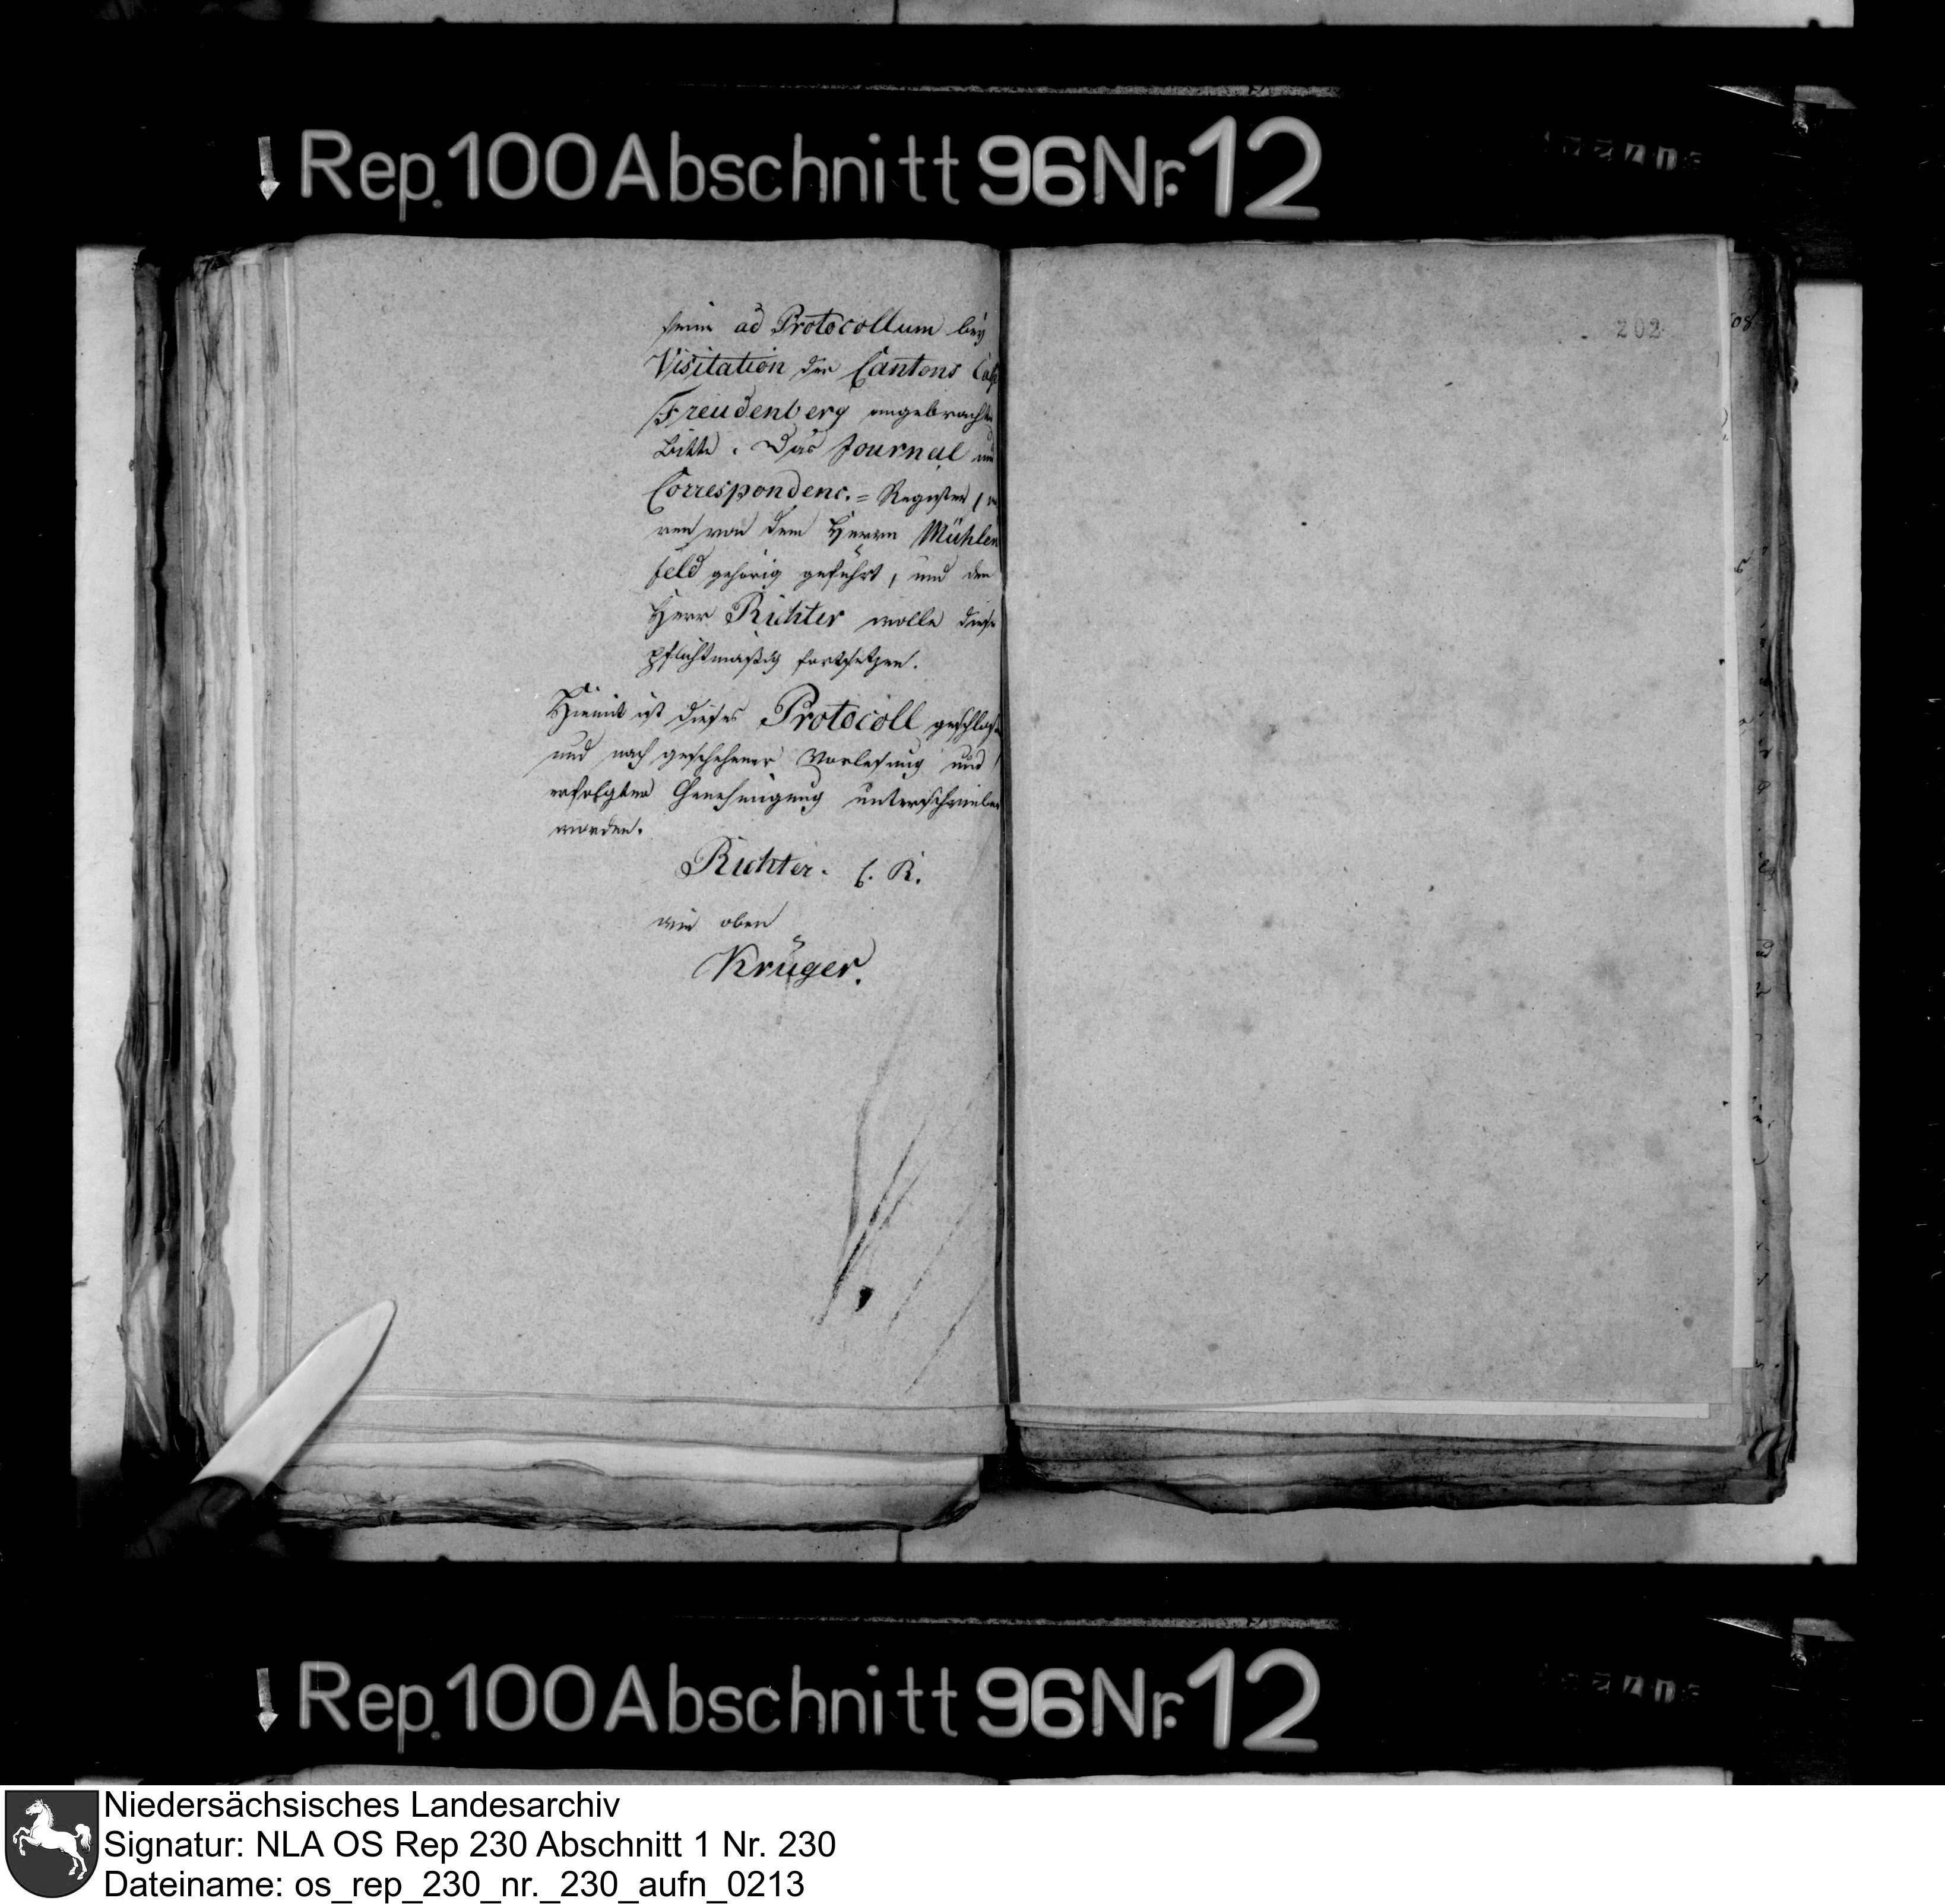 Rep. 100 Abschnitt 96 Nr. 12
202
08
seine ad Protocollum bey
Visitation des Cantons
Freudenberg angebrachte
Bitte. Das Journal und
Correspondenc.=Register,
ren von dem Herrn Mühlen
feld gehörig geführt, und der
Herr Richter wolle diese
pflichtmäßig fortsetzen.
Hiemit ist dieses Protocoll geschloss
und nach geschehener Vorlesung und
erfolgter Genehmigung unterschrieben
worden.
Richter. C. R.
wie oben
Krüger.
Rep. 100 Abschnitt 96 Nr. 12
Niedersächsisches Landesarchiv
Signatur: NLA OS Rep 230 Abschnitt 1 Nr. 230
Dateiname: os_rep_230_nr._230_aufn_0213